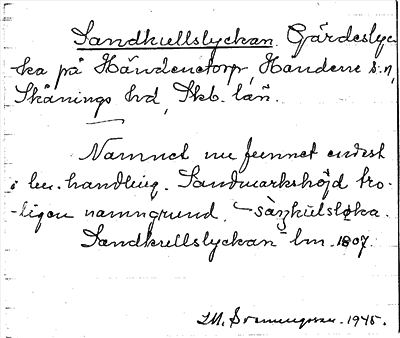 Sandkullslyckan. Gärdeslyc-
ka på Händenetorp, Händene s:n,
Skånings hd, Skb. län.
Namnet nu funnet endast
i lm. handling. Sandmarkshöjd tro-
-ligen namngrund.
Sandkullslyckan lm. 1807.
1945.